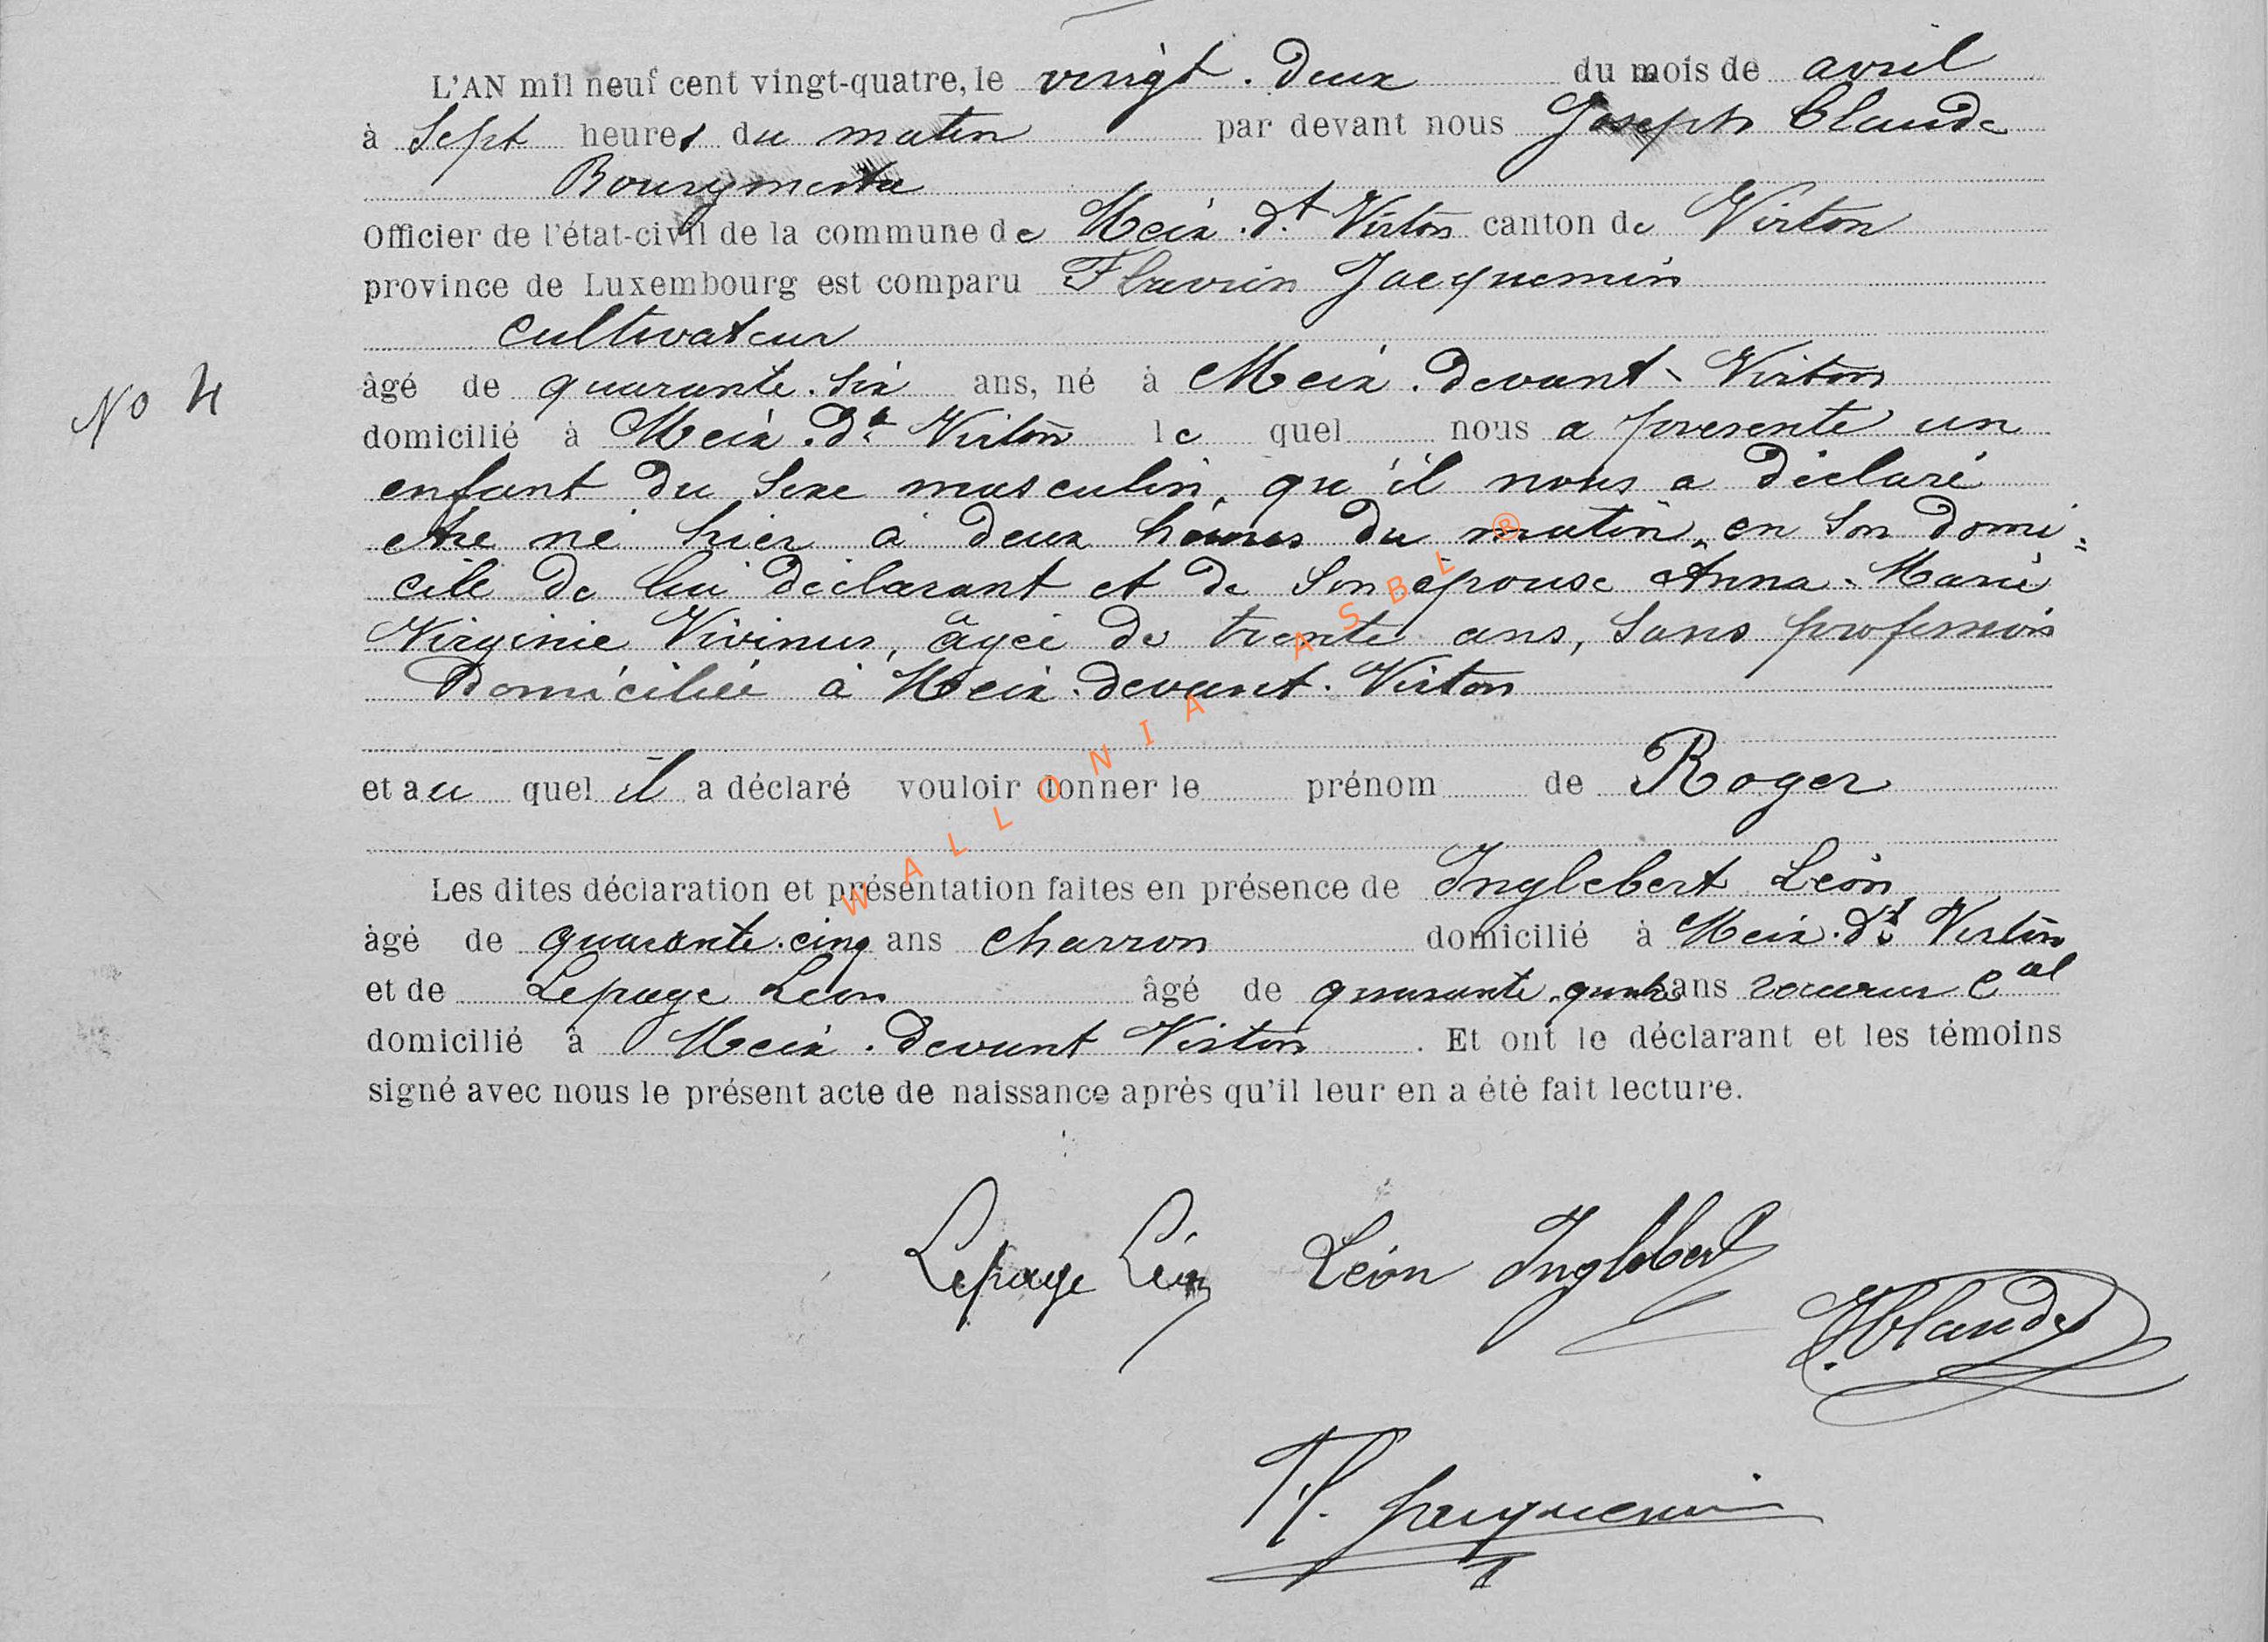 L'AN mil neuf cent vingt-quatre, le vingt-deux du mois de avril
à Sept heures du matin par devant nous Joseph Claude
Bourgmestre
Officier de l'état-civil de la commune de Meix-dt Virton canton de Virton
province de Luxembourg est comparu Flavien Jacquemin
cultivateur
No 4
âgé de quarante-six ans, né à Meix-devant-Virton
domicilié à Meix-dt Virton le quel nous a presenté un
enfant du sexe masculin, qu'il nous a déclaré
etre né hier à deux heures du matin, en son domi=
cile de lui déclarant et de son épouse Anna-Marie
Virginie Vivinus, âgée de trente ans, sans profession
Domiciliée à Meix-devant-Virton
et au quel il a déclaré vouloir donner le prénom de Roger
Les dites déclaration et présentation faites en présence de Inglebert Léon
âgé de quarante-cinq ans charron domicilié à Meix-dt Virton
et de Lepage Léon âgé de quarante-quatre ans receveur Cal
domicilié à Meix-devant Virton. Et ont le déclarant et les témoins
signé avec nous le présent acte de naissance après qu'il leur en a été fait lecture.
Lepage Léon Léon Inglebert
J Claude
Fl. Jacquemin
WALLONIA ASBL ®